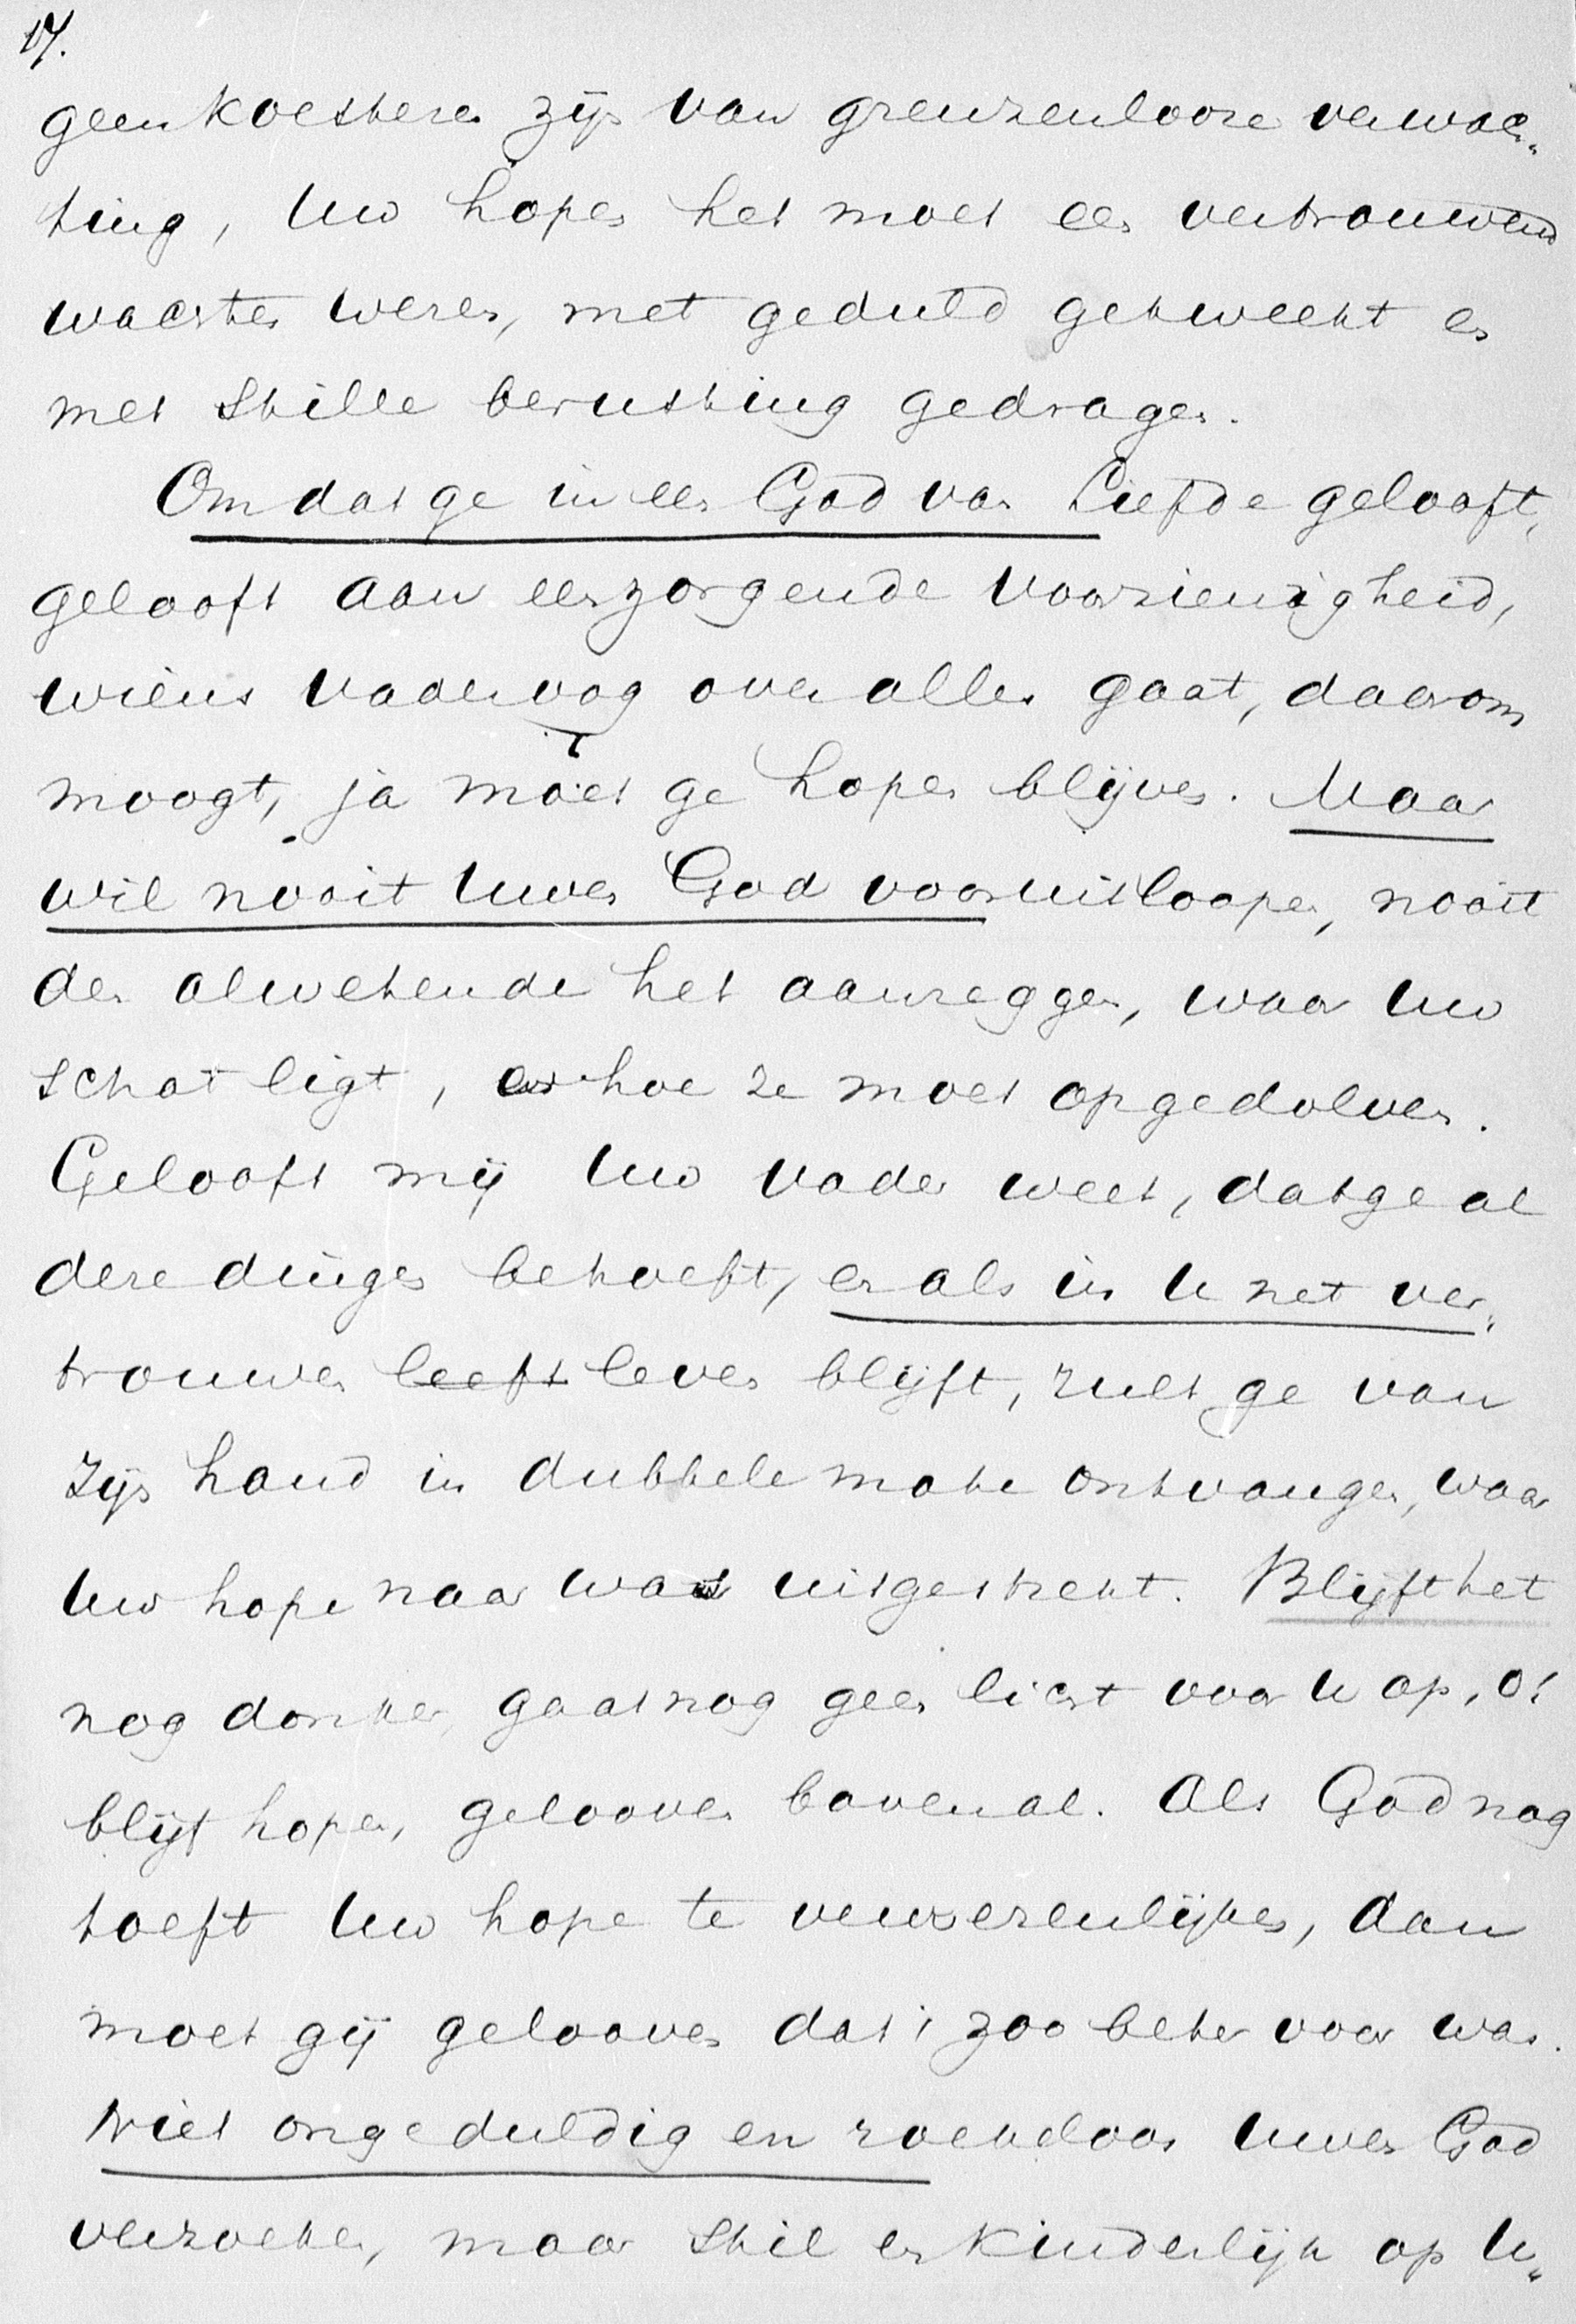 17.
geen koesteren zijn van grenzenlooze verwach„
ting, Uw hopen het moet een vertrouwend
wachten wezen, met geduld gekweekt en
met stille berusting gedragen.
Omdat ge in een God van Liefde gelooft,
gelooft aan een zorgende Voorzienigheid,
wiens Vaderoog over alles gaat, daarom
moogt, ja moet ge hopen blijven. Maar
wil nooit Uwen God vooruitloopen, nooit
den alwetende het aanzeggen, waar Uw
schat ligt, en hoe ze moet opgedolven.
Gelooft mij Uw Vader weet, dat ge al
deze dingen behoeft, en als in U net ver„
trouwen leeft leven blijft, zult ge van
zijn hand in dubbele mate ontvangen, waar
Uw hope naar was uitgestrekt. Blijft het
nog donker, gaat nog geen licht voor U op, o!
blijf hopen, gelooven bovenal. Als God nog
toeft Uw hope te verwezenlijken, dan
moet gij gelooven dat 't zoo beter voor was.
Niet ongeduldig en roekeloos Uwen God
verzoeken, maar stil en kinderlijk op U„